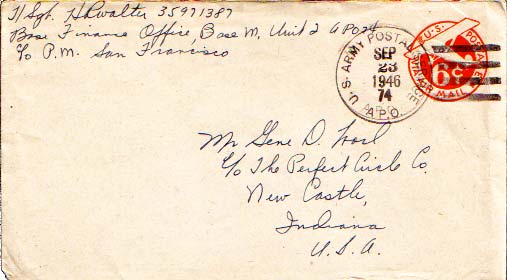 T/Sgt. H L Walter 35971387
Base Finance Office, Base M, Unit 2 APO 74
c/o P.M. San Francisco
U.S. ARMY POSTAL
SEP
23
1946
74
A.P.O.
U.S. POSTAGE
6¢
AIR MAIL
Mr Gene D.
c/o The Perfect Circle Co.
New Castle,
Indiana
U.S.A.